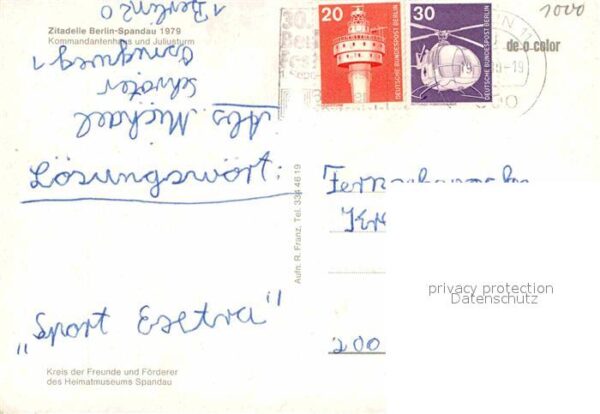 Zitadelle Berlin-Spandau 1979
Kommandantenhaus und Juliusturm
Abs. Michael
Schröter
1 Berlin 20
Lösungswort:
„Sport Extra"
Kreis der Freunde und Förderer
des Heimatmuseums Spandau
Aufn: R. Franz, Tel. 334 46 19
20
DEUTSCHE BUNDESPOST BERLIN
30
DEUTSCHE BUNDESPOST BERLIN
30.
de o color
1000
privacy protection
Datenschutz
200